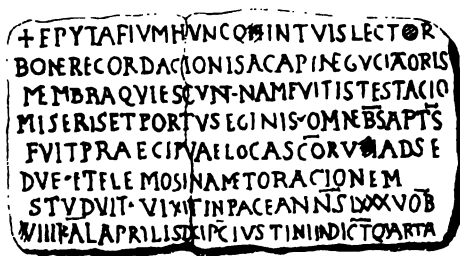 + EPYTAFIVM HVNC QVI INTVIS LECTOR
BONE RECORDACIONIS AGAPI NEGVCIATORIS
MEMBRA QVIESCVNT· NAM FVIT ISTE STACIO
MISERIS ET PORTVS EGINIS· OMNEBS APTS
FVIT PRAECIPVAE LOCA SCORVM ADSE
DVE· ET ELEMOSINAM ET ORACIONEM
STVDVIT· VIXIT IN PACE ANNS LXXXV OB
VIIII KAL APRILIS IXI PC IVSTINI INDICT QVARTA